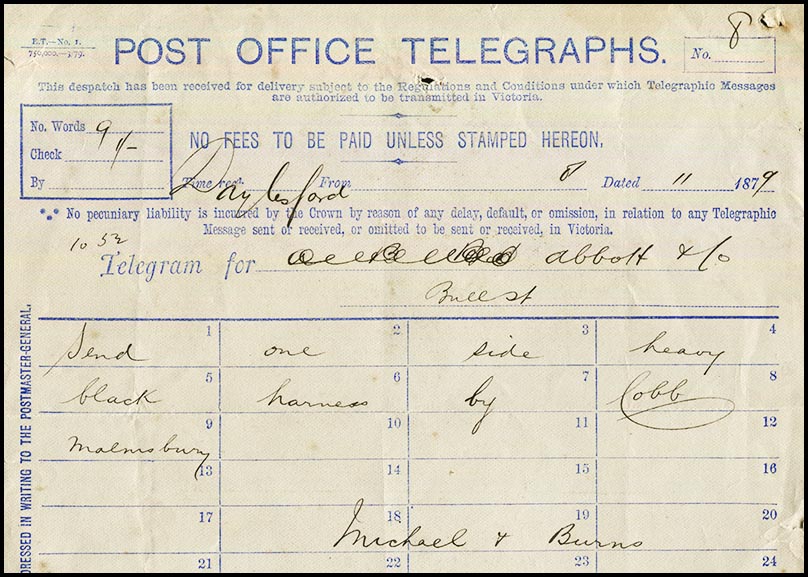 B.T.—No. 1.
750,000.—3.79.
POST OFFICE TELEGRAPHS.
No. 8
This despatch has been received for delivery subject to the Regulations and Conditions under which Telegraphic Messages
are authorized to be transmitted in Victoria.
No. Words 9
Check 1/-
By
NO FEES TO BE PAID UNLESS STAMPED HEREON,
Time rec'd. From Daylesford 8 Dated 11 1879
No pecuniary liability is incurred by the Crown by reason of any delay, default, or omission, in relation to any Telegraphic
Message sent or received, or omitted to be sent or received, in Victoria.
10 52
Telegram for abbott & Co
Bull st
1 2 3 4
Send one side heavy
5 6 7 8
black harness by Cobb
9 10 11 12
Malmsbury
13 14 15 16
17 18 19 20
Michael & Burns
21 22 23 24
DRESSED IN WRITING TO THE POSTMASTER-GENERAL.